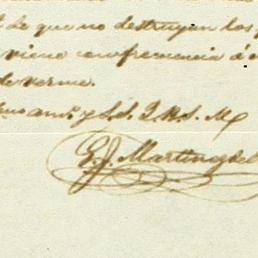 de que no destruyan los
viene con frecuencia á
de verme.
am.º y S.S. Q.B.S.M.
E. J. Martinez del